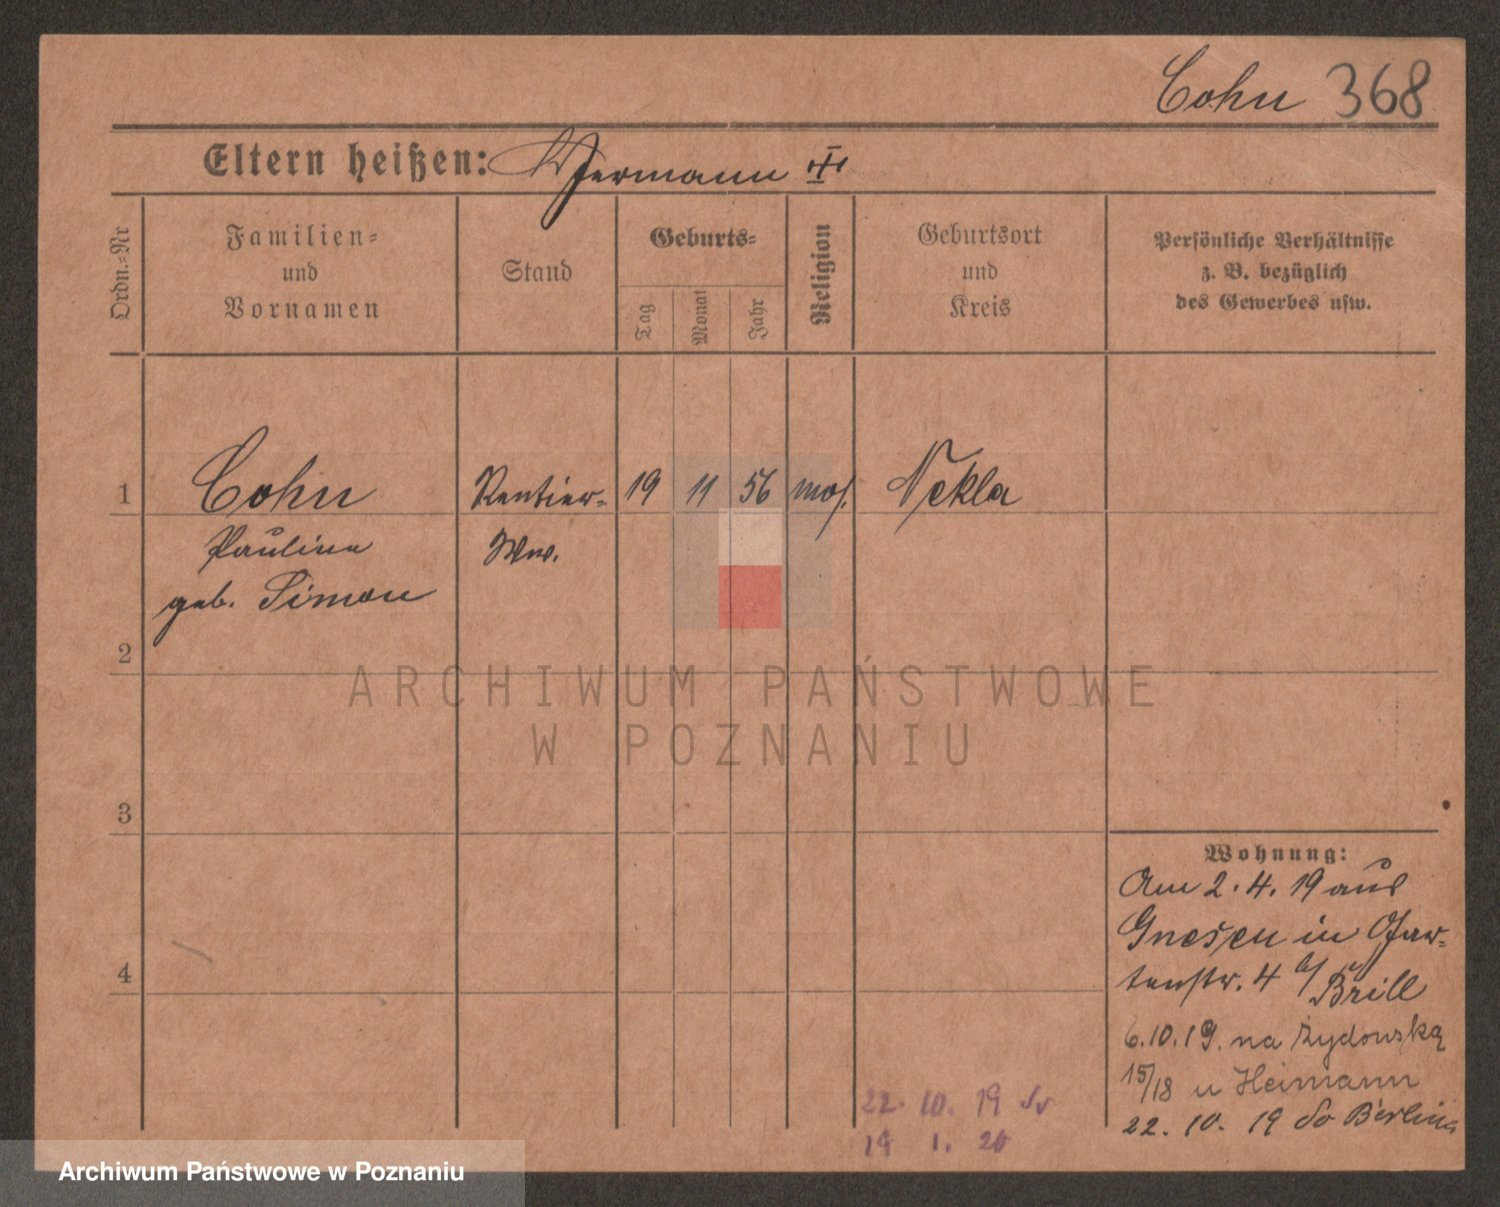 Cohn 368
Eltern heißen: Hermann III
Ordn.-Nr
Familien-
und
Vornamen
Stand
Geburts-
Tag
Monat
Jahr
Religion
Geburtsort
und
Kreis
Persönliche Verhältnisse
z. B. bezüglich
des Gewerbes usw.
1 Cohn Rentier- 19 11 56 mos. Nekla
Pauline Ww.
geb. Simon
2
3
4
Wohnung:
Am 2.4.19 aus
Gnesen in Gar-
tenstr. 4 b/ Brill
6.10.19. na Żydowską
15/18 u Heimann
22. 10. 19 do Berlina
22. 10. 19
19 1. 20
ARCHIWUM PAŃSTWOWE
W POZNANIU
Archiwum Państwowe w Poznaniu